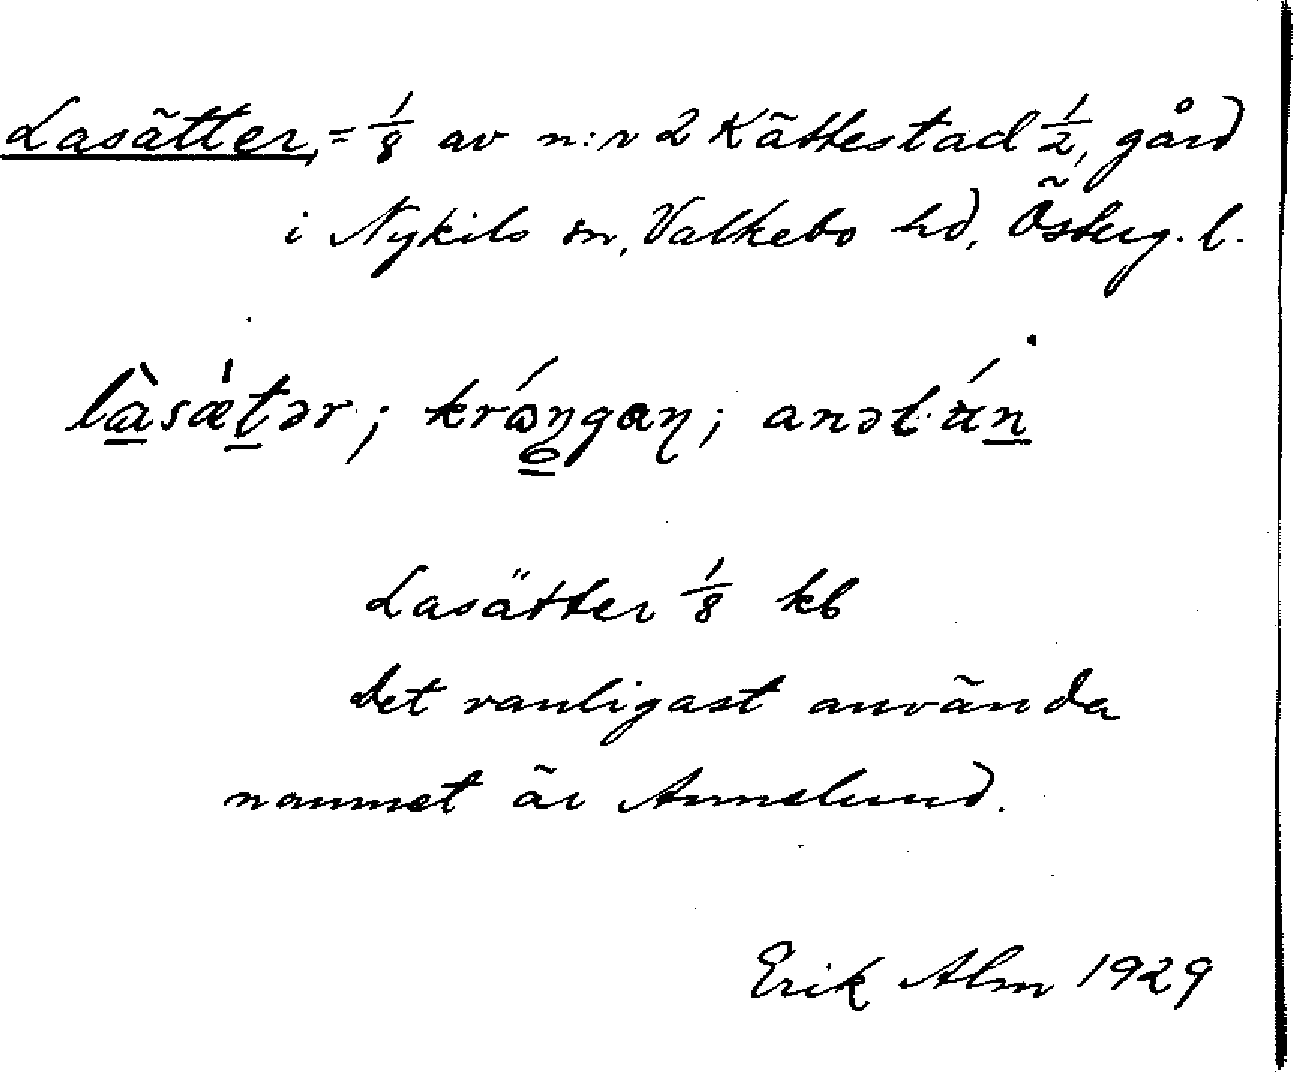 Lasätter, = 1/8 av n:r 2 Kättestad 1/2, gård
i Nykils sn, Valkebo hd, Österg. l.
là̱sæ̍ṯər; krɷ́ŋgaŋ; anəlúṉ
Lasätter 1/8 kb
Det vanligast använda
namnet är Annelund.
Erik Alm 1929